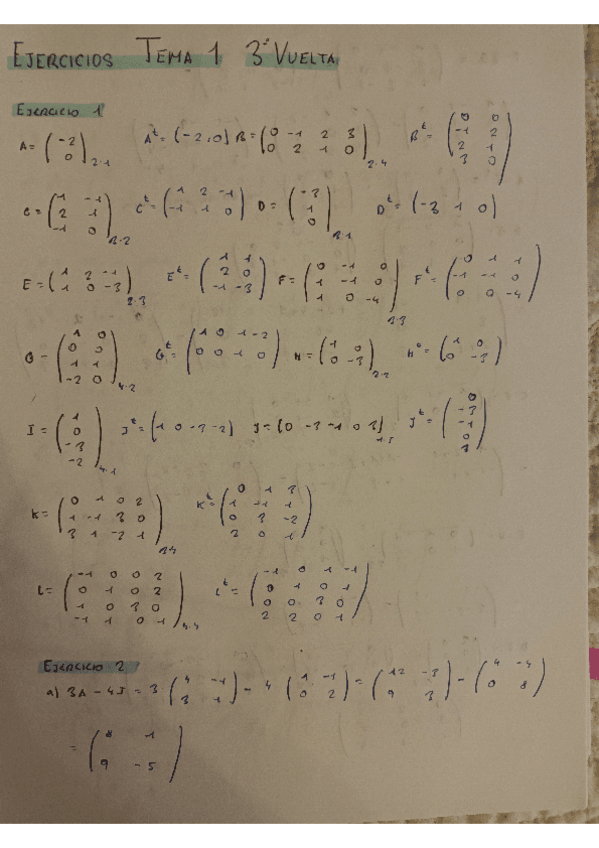 EJERCICIOS TEMA 1 3ª VUELTA
EJERCICIO 1
A = (-2 ; 0) 2·1 Aᵗ = (-2, 0) B = (0 -1 2 3 ; 0 2 1 0) 2·4 Bᵗ = (0 0 ; -1 2 ; 2 1 ; 3 0)
C = (1 -1 ; 2 1 ; -1 0) 3·2 Cᵗ = (1 2 -1 ; -1 1 0) D = (-3 ; 1 ; 0) 3·1 Dᵗ = (-3 1 0)
E = (1 2 -1 ; 1 0 -3) 2·3 Eᵗ = (1 1 ; 2 0 ; -1 -3) F = (0 -1 0 ; 1 -1 0 ; 1 0 -4) 3·3 Fᵗ = (0 1 1 ; -1 -1 0 ; 0 0 -4)
G = (1 0 ; 0 0 ; 1 1 ; -2 0) 4·2 Gᵗ = (1 0 1 -2 ; 0 0 1 0) H = (1 0 ; 0 -3) 2·2 Hᵗ = (1 0 ; 0 -3)
I = (1 ; 0 ; -3 ; -2) 4·1 Iᵗ = (1 0 -3 -2) J = (0 -3 -1 0 3) Jᵗ = (0 ; -3 ; -1 ; 0 ; 3)
K = (0 1 0 2 ; 1 -1 3 0 ; 3 1 -2 1) 3·4 Kᵗ = (0 1 3 ; 1 -1 1 ; 0 3 -2 ; 2 0 1)
L = (-1 0 0 2 ; 0 1 0 2 ; 1 0 3 0 ; -1 1 0 1) 4·4 Lᵗ = (-1 0 1 -1 ; 0 1 0 1 ; 0 0 3 0 ; 2 2 0 1)
EJERCICIO 2
a) 3A - 4I = 3 (4 -1 ; 3 1) - 4 (1 -1 ; 0 2) = (12 -3 ; 9 3) - (4 -4 ; 0 8)
= (8 1 ; 9 -5)